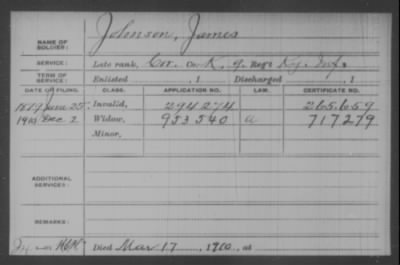 NAME OF SOLDIER: Johnson, James
SERVICE: Late rank, Cor. Co. K, 9, Reg't Ky. Inf.
TERM OF SERVICE: Enlisted , 1 Discharged , 1
DATE OF FILING. CLASS. APPLICATION NO. LAW. CERTIFICATE NO.
1879 June 25 Invalid, 294274 265.659
Dec 2 Widow, 953540 a 717279
Minor,
ADDITIONAL SERVICES:
REMARKS:
Died Mar 17, 1910, at